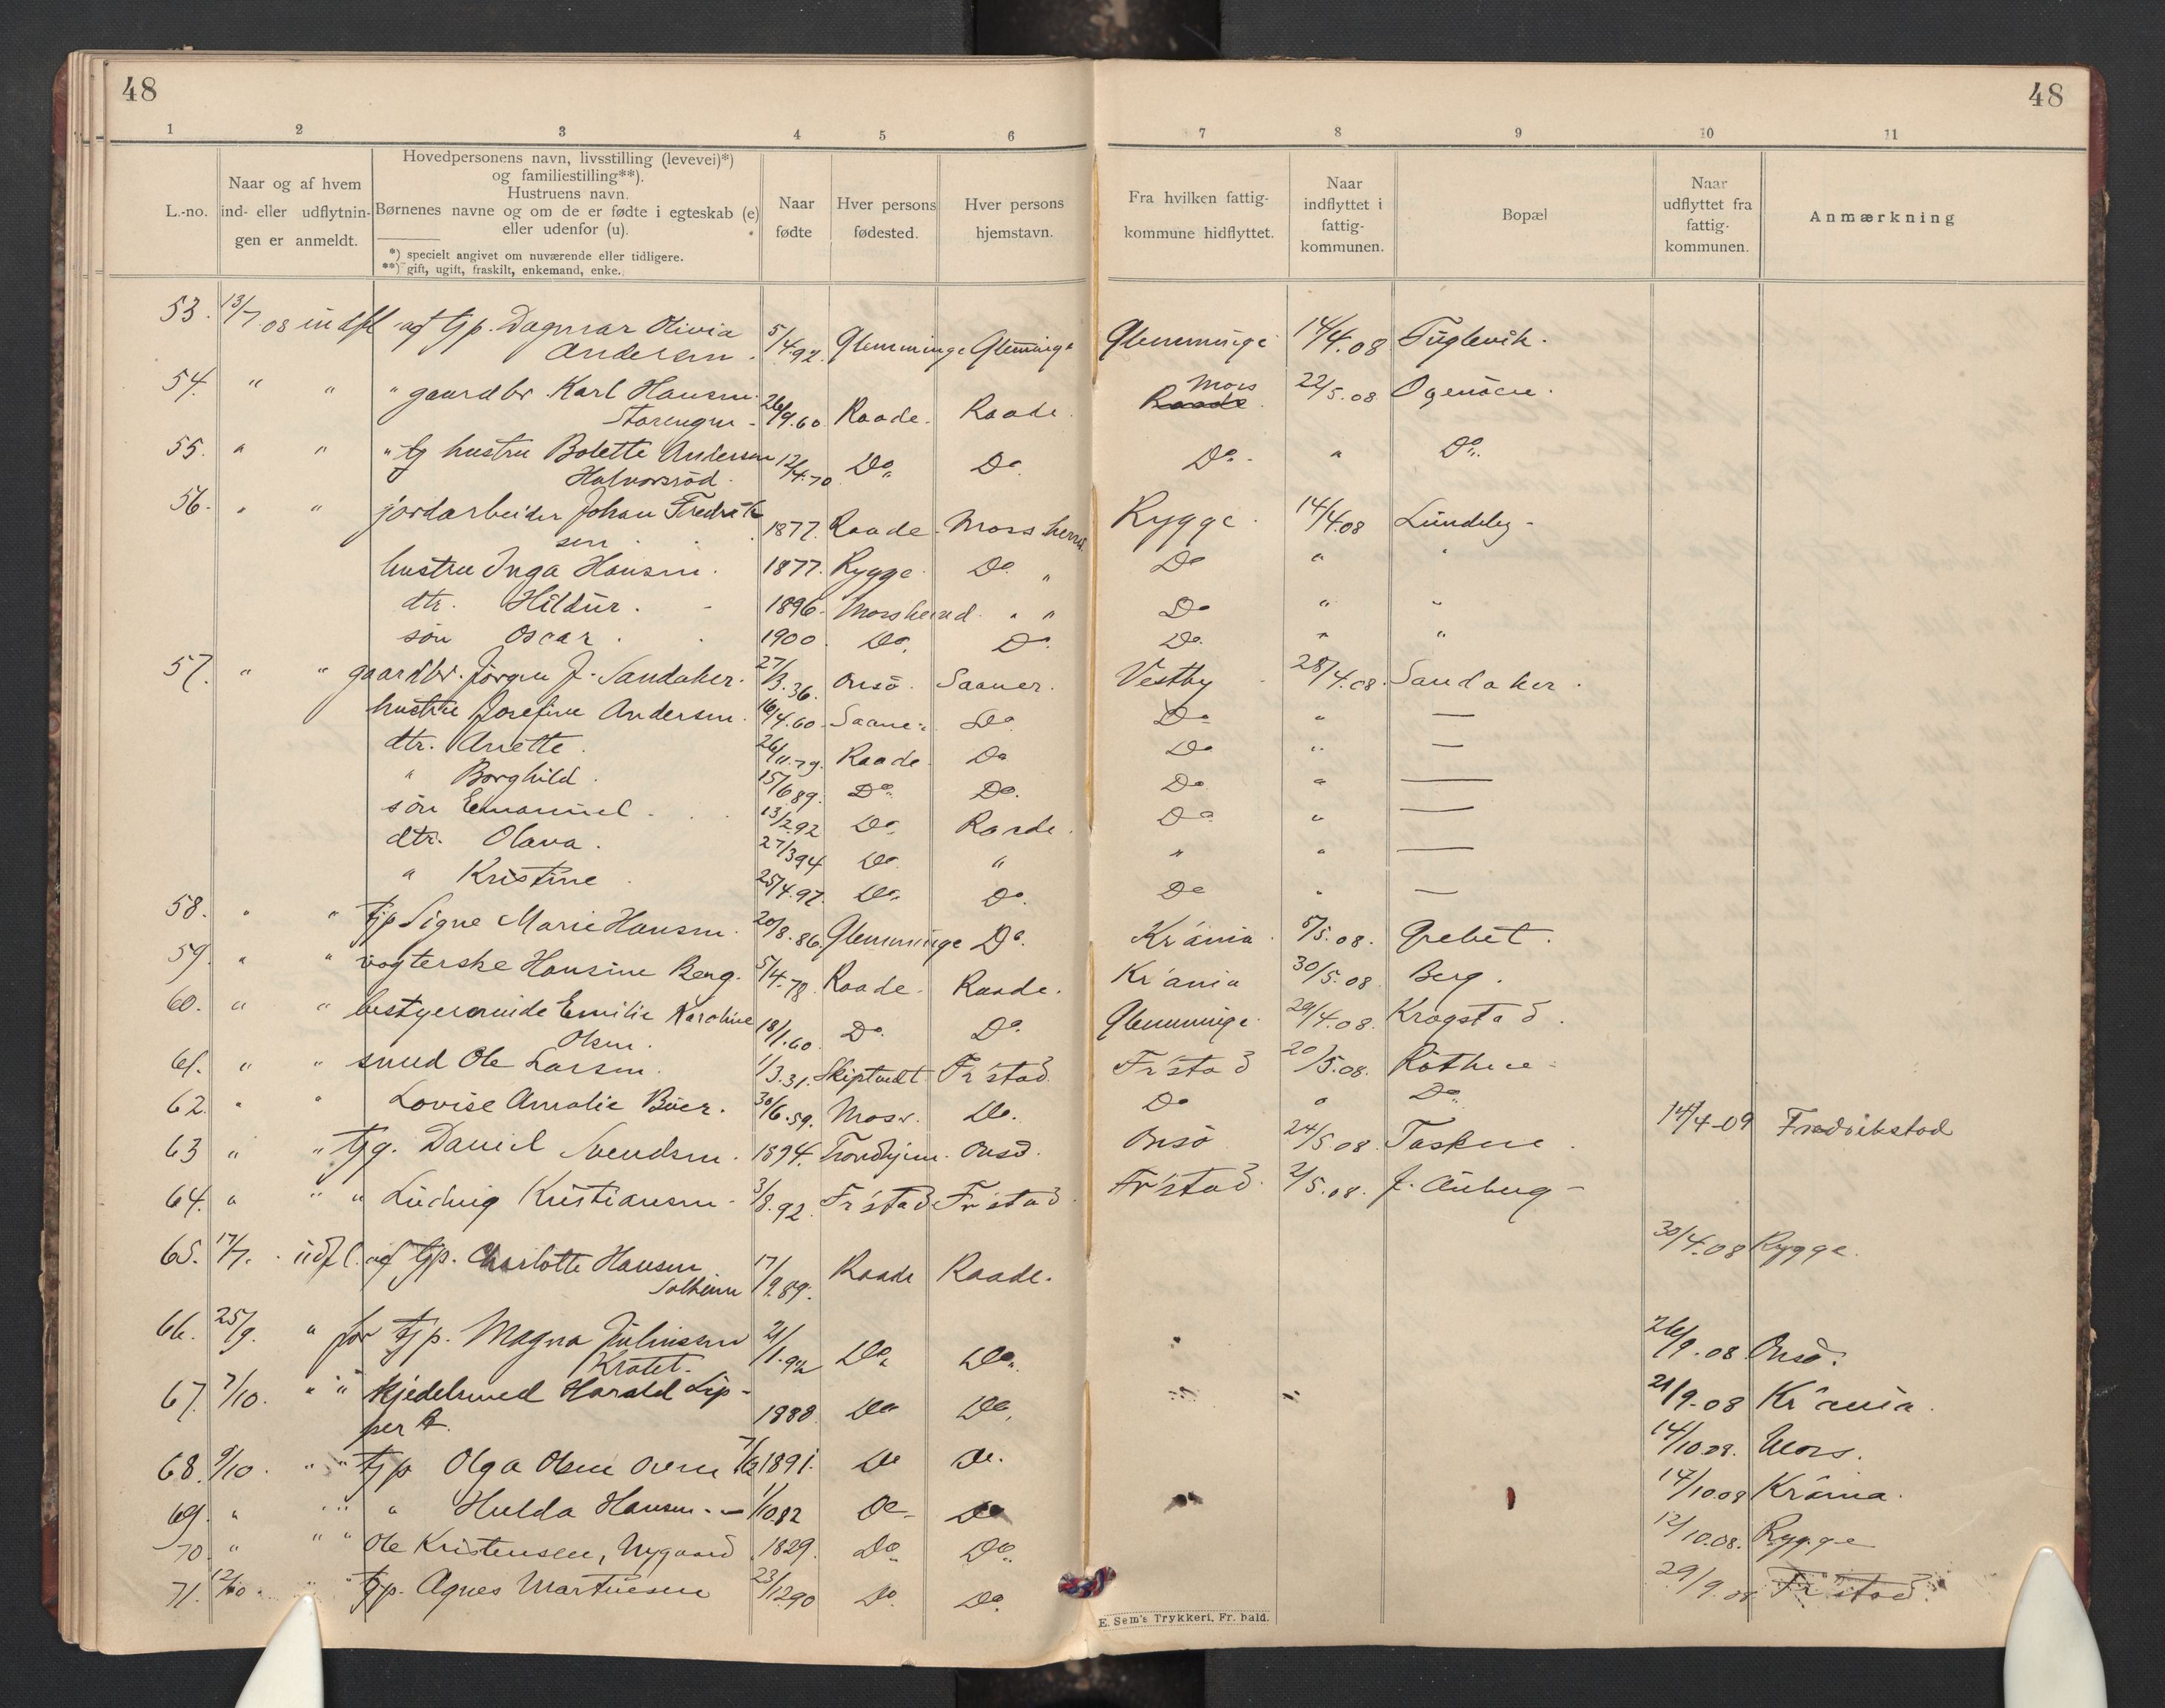 48 48
1 2 3 4 5 6 7 8 9 10 11
L.-no.
Naar og af hvem
ind- eller udflytnin-
gen er anmeldt.
Hovedpersonens navn, livsstilling (levevei)*)
og familiestilling**).
Hustruens navn.
Børnenes navne og om de er fødte i egteskab (e)
eller udenfor (u).
*) specielt angivet om nuværende eller tidligere.
**) gift, ugift, fraskilt, enkemand, enke.
Naar
fødte
Hver persons
fødested.
Hver persons
hjemstavn.
Fra hvilken fattig-
kommune hidflyttet.
Naar
indflyttet i
fattig-
kommunen.
Bopæl
Naar
udflyttet fra
fattig-
kommunen.
Anmærkning
53. 13/7.08 indfl. af tjp. Dagmar Olivia
Andersen. 5/4.92. Glemminge Glemminge Glemminge 14/4.08 Fuglevik.
54. " " " gaardbr. Karl Hansen
26/9.60 Raade. Raade. Raade Moss 22/5.08
55. " " " tj hustru Bolette Andersen
Halvorsrød. 12/4.70 Do. Do. Do. " Do.
56. " " jordarbeider Johan Fredrik
sen. 1877. Raade. Moss herred Rygge. 14/4.08 Lundeby
hustru Inga Hansen. 1877. Rygge. Do. " Do " "
dtr. Hildur. 1896. Mossherred. " " Do " "
søn Oscar. 1900. Do. Do. Do. " "
57. " " gaardbr. Jørgen J. Sandaker. 27/3.36. Onsø. Saaner. Vestby 28/4.08. Sandaker.
hustru Josefine Andersen. 16/4.60. Saaner Do. Do " —
dtr. Anette. 26/11.79. Raade. Do Do " —
" Borghild. 15/6 89. Do. Do. Do " —
søn Emanuel. 13/2 92 Do. Raade. Do " —
dtr. Olava. 27/3 94 Do. " " " —
" Kristine 25/4.97. Do. Do. Do " —
58. " " tjp Signe Marie Hansen. 20/8.86. Glemminge Do. Kr'ania. 5/5.08. Grebet.
59. " " vogterske Hansine Berg. 5/4.78. Raade. Raade. Kr'ania 30/5.08 Berg.
60. " " bestyerinde Emilie Karoline
Olsen. 18/1.60. Do. Do. Glemminge. 29/4.08. Krogstad.
61. " " smed Ole Larsen. 1/3.31. Skiptvedt Fr'stad. Fr'stad 20/5.08.
62. " " Lovise Amalie Buer. 30/6.59. Moss. Do. Do " Do.
63 " " tjg. Daniel Svendsen. 1894. Trondhjem. Onsø. Onsø 24/5.08. Tasken. 14/4-09 Fredrikstad
64. " " " Ludvig Kristiansen. 3/8.92. Fr'stad Fr'stad Fr'stad. 2/5.08. J.
65. 17/7. udfl. af tjp. Charlotte Hansen
Solheim 17/9.89. Raade Raade. 30/4.08 Rygge.
66. 25/9. " for tjp. Magna Juliussen
Krotet. 21/1.92 Do. Do. 26/9.08 Onsø.
67. 7/10. " " kjedelsmed Harald Lip-
pert. 1888. Do Do. 21/9.08 Kr'ania.
68. 9/10. " " tjp Olga Olsen 1891. Do Do. 14/10.08. Moss.
69. " " " " Hulda Hansen. — 1/10 82 Do. Do 14/10 08 Kr'ania.
70. " " " Ole Kristensen, Nygaard. 1829. Do. Do. 12/10.08. Rygge
71. 12/10. " " tjp. Agnes Martinsen 23/12 90 Do. Do. 29/9.08 Fr'stad.
E. Sem's Trykkeri, Fr. hald.